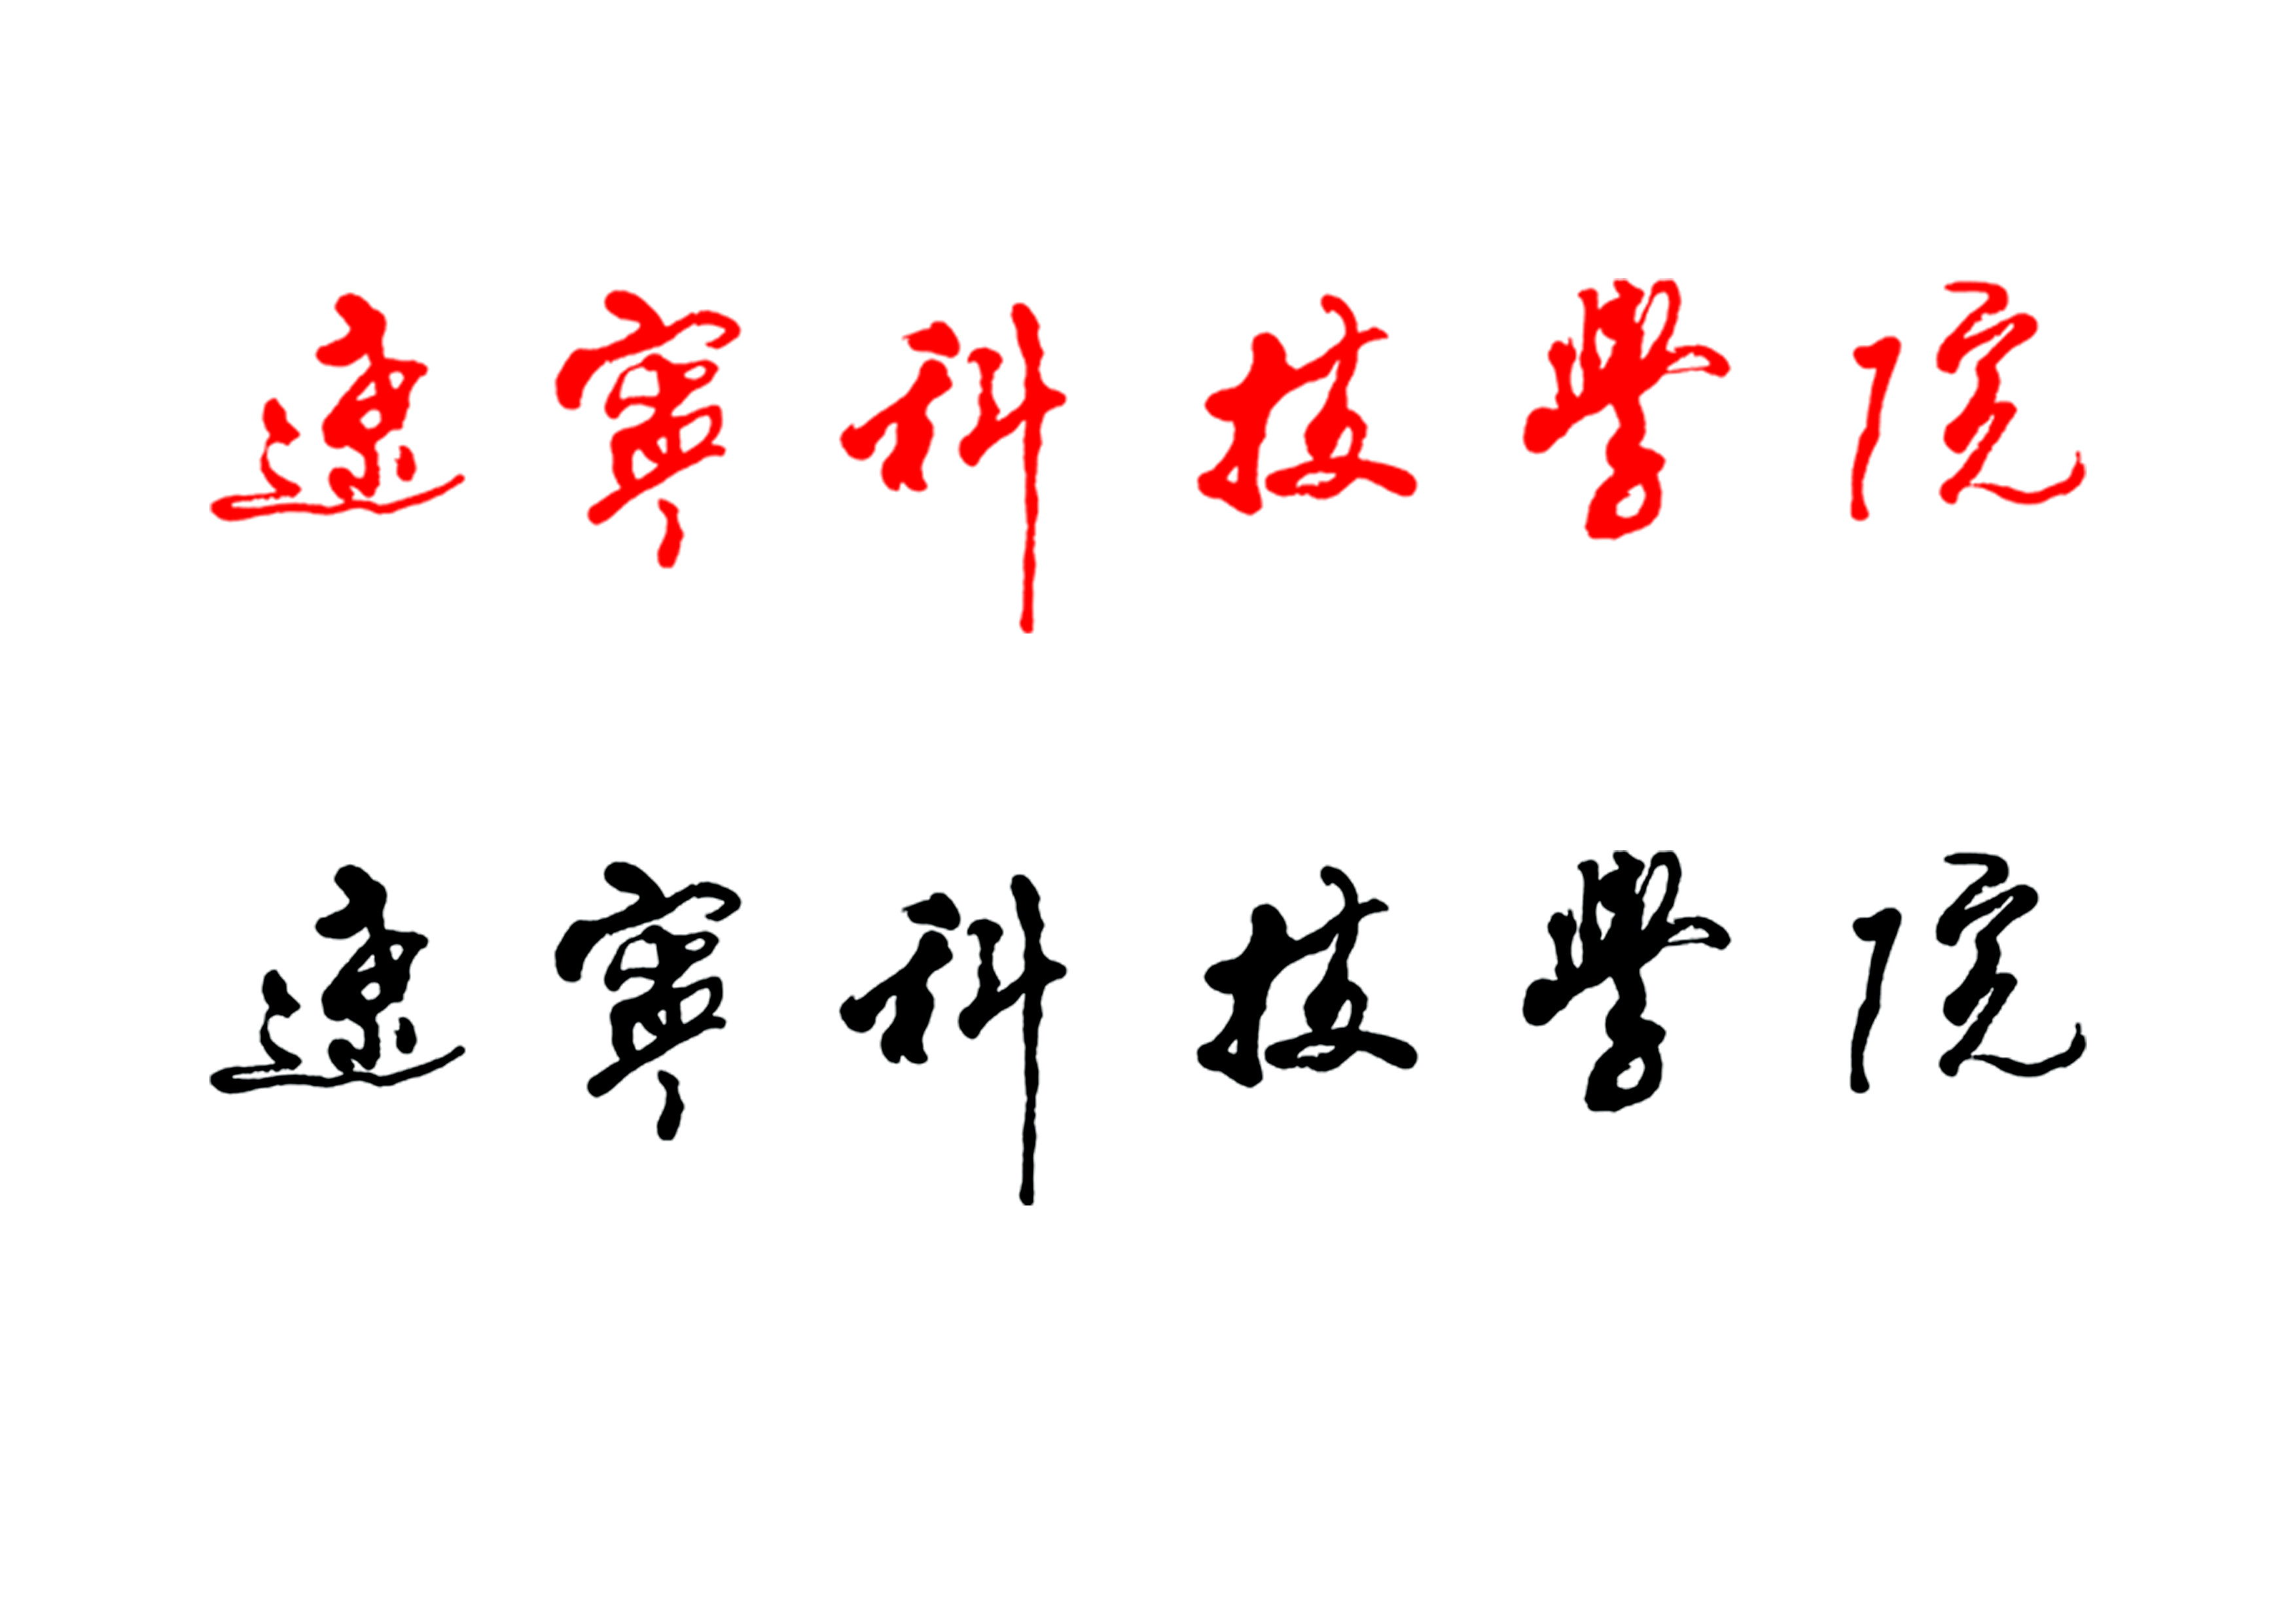 遼寧科技學院
遼寧科技學院